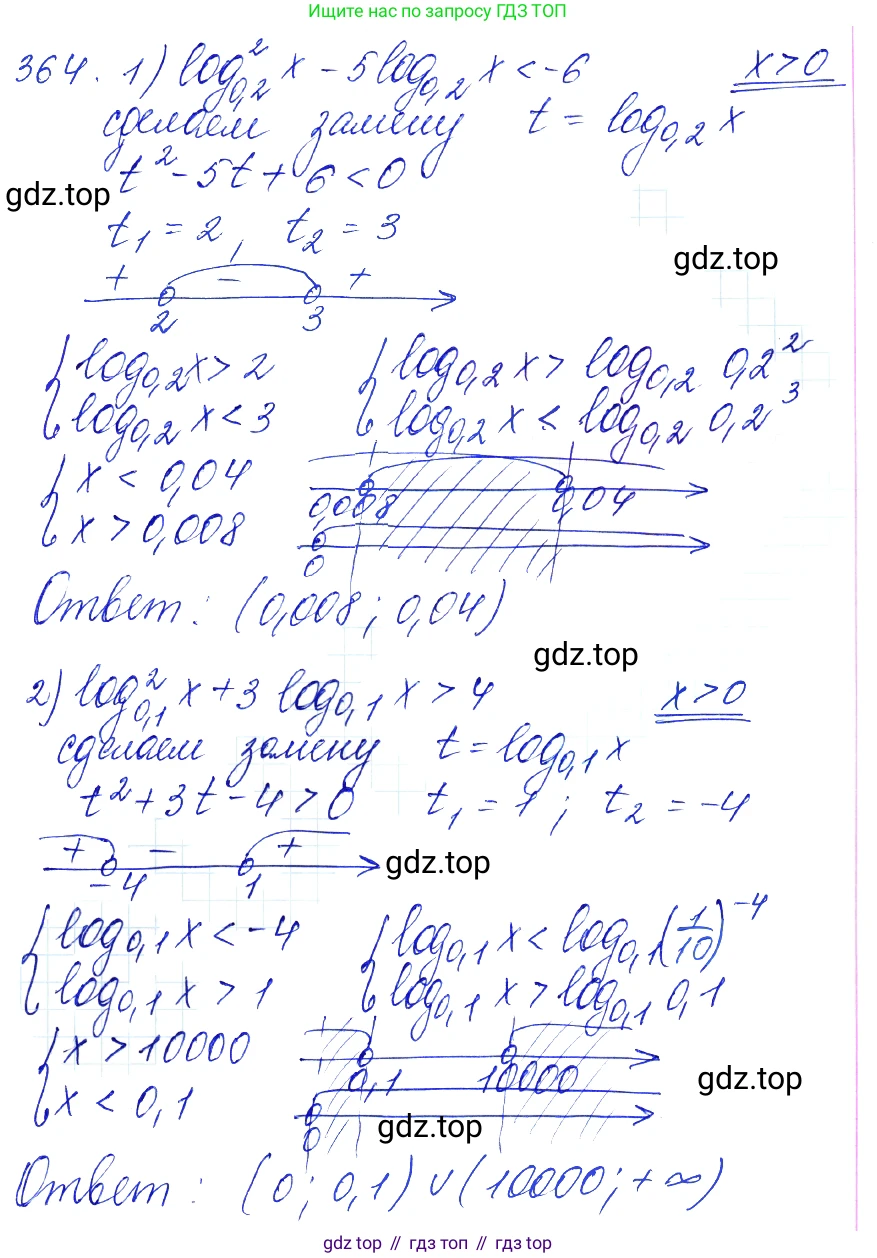 Ищите нас по запросу ГДЗ ТОП
364. 1) log²₀,₂ x - 5 log₀,₂ x < -6 x > 0
сделаем замену t = log₀,₂ x
t² - 5t + 6 < 0
gdz.top
t₁ = 2, t₂ = 3
gdz.top
+ - +
2 3
{ log₀,₂ x > 2 { log₀,₂ x > log₀,₂ 0,2²
{ log₀,₂ x < 3 { log₀,₂ x < log₀,₂ 0,2³
{ x < 0,04
0,008 0,04
{ x > 0,008
0
Ответ: (0,008; 0,04)
gdz.top
2) log²₀,₁ x + 3 log₀,₁ x > 4 x > 0
сделаем замену t = log₀,₁ x
t² + 3t - 4 > 0 t₁ = 1; t₂ = -4
+ - +
gdz.top
-4 1
{ log₀,₁ x < -4 { log₀,₁ x < log₀,₁ (1/10)⁻⁴
{ log₀,₁ x > 1 { log₀,₁ x > log₀,₁ 0,1
{ x > 10000
0,1 10000
gdz.top
{ x < 0,1
0
gdz.top
Ответ: (0; 0,1) ∪ (10000; +∞)
gdz.top // гдз топ // гдз top